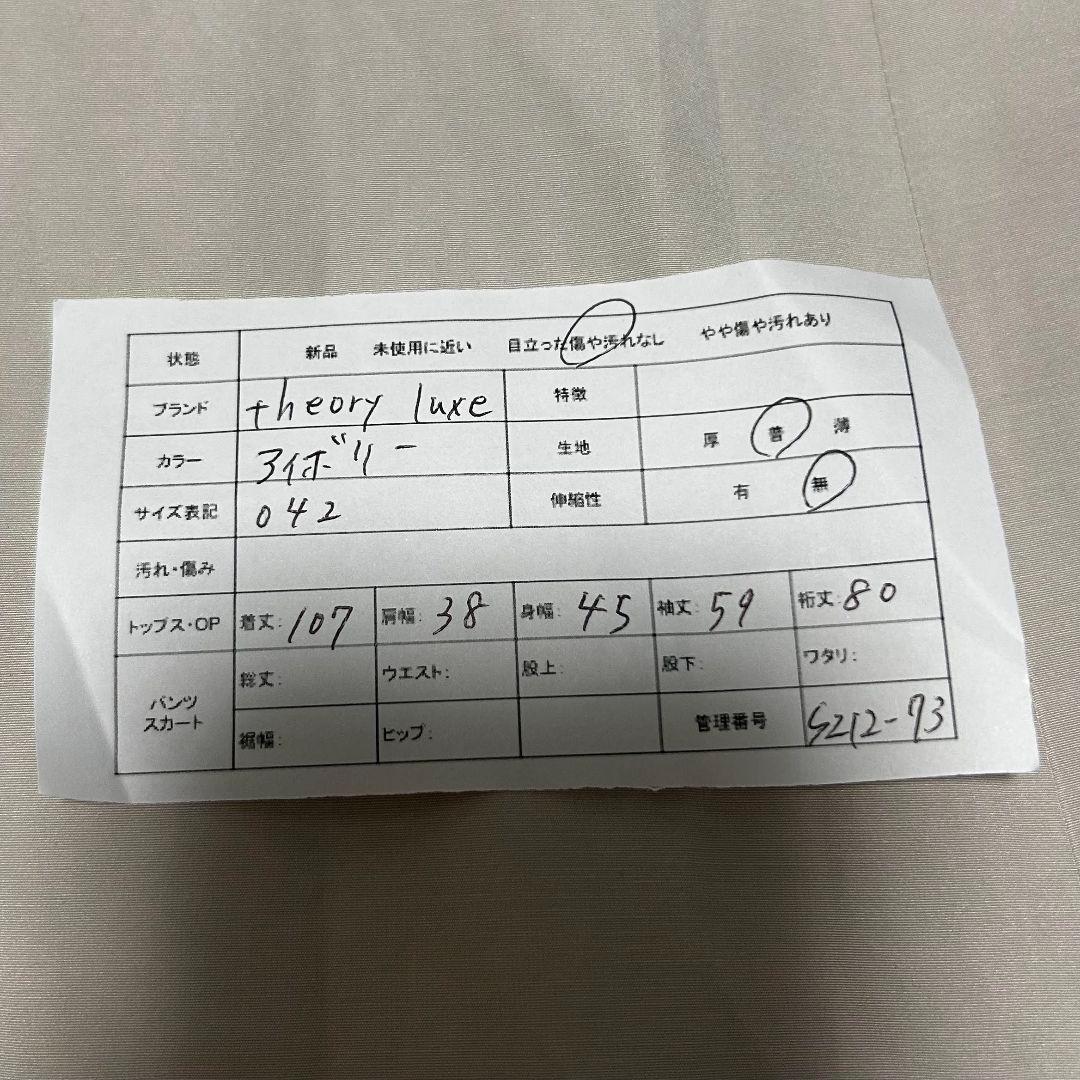 状態 新品 未使用に近い 目立った傷や汚れなし やや傷や汚れあり
ブランド theory luxe 特徴
カラー アイボリー 生地 厚 普 薄
サイズ表記 042 伸縮性 有 無
汚れ・傷み
トップス・OP 着丈: 107 肩幅: 38 身幅: 45 袖丈: 59 裄丈: 80
パンツ スカート 総丈: ウエスト: 股上: 股下: ワタリ:
裾幅: ヒップ: 管理番号 S212-73